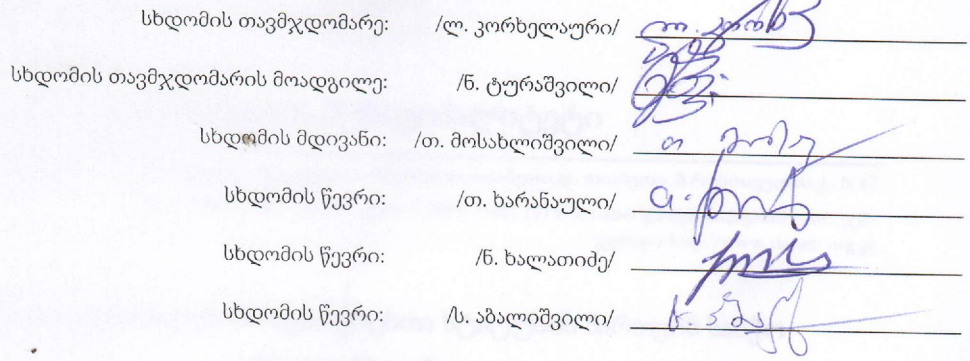 სხდომის თავმჯდომარე: /ლ. კორხელაური/
სხდომის თავმჯდომარის მოადგილე: /ნ. ტურაშვილი/
სხდომის მდივანი: /თ. მოსახლიშვილი/
სხდომის წევრი: /თ. ხარანაული/
სხდომის წევრი: /ნ. ხალათიძე/
სხდომის წევრი: /ს. აბალიშვილი/